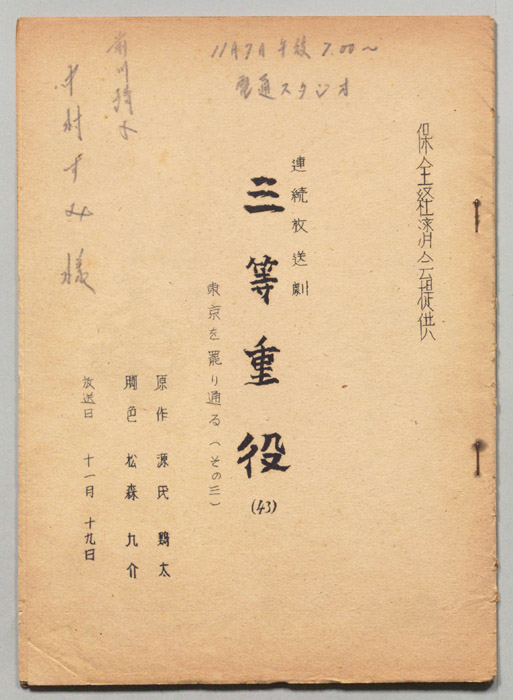 11月7日 午後 7.00～
電通スタジオ
保全経済会提供
連続放送劇
三等重役
(43)
東京を罷り通る(その三)
原作 源氏鶏太
脚色 松森九介
放送日 十一月十九日
中村すみ様